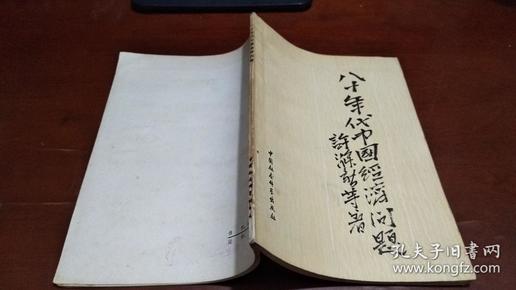 八十年代中國經濟问題
許滌新等著
中国社会科学出版社
孔夫子旧书网
www.kongfz.com